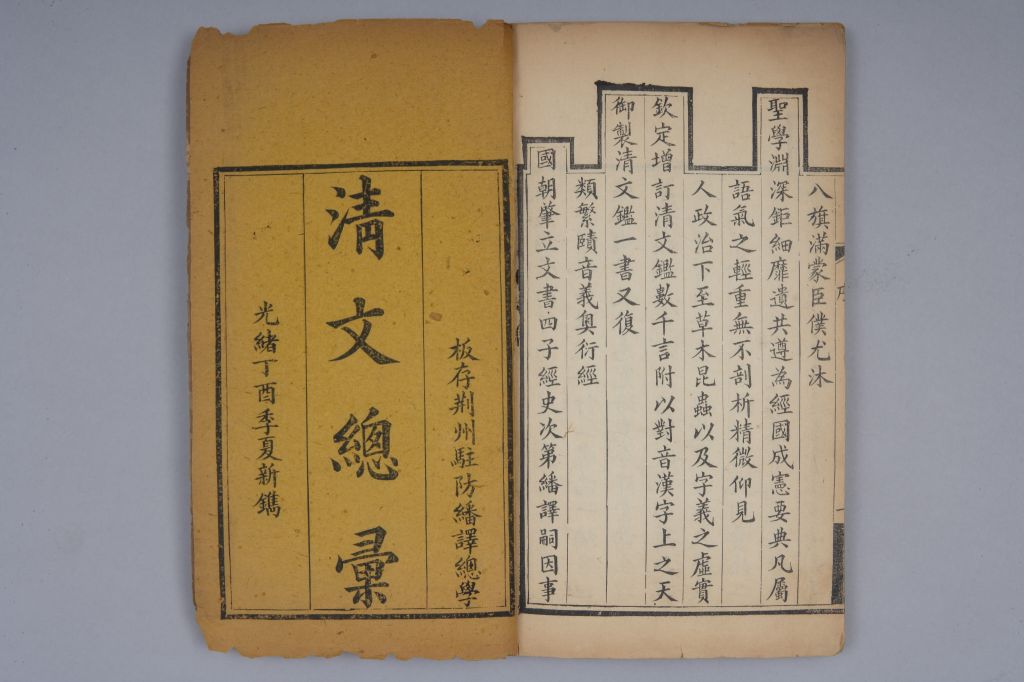 光緒丁酉季夏新鐫
清文總彙
板存荆州駐防繙譯總學
國朝肇立文書四子經史次第繙譯嗣因事
類繁賾音義奥衍經
御製清文鑑一書又復
欽定增訂清文鑑數千言附以對音漢字上之天
人政治下至草木昆蟲以及字義之虛實
語氣之輕重無不剖析精微仰見
聖學淵深鉅細靡遺共遵為經國成憲要典凡屬
八旗滿蒙臣僕尤沐